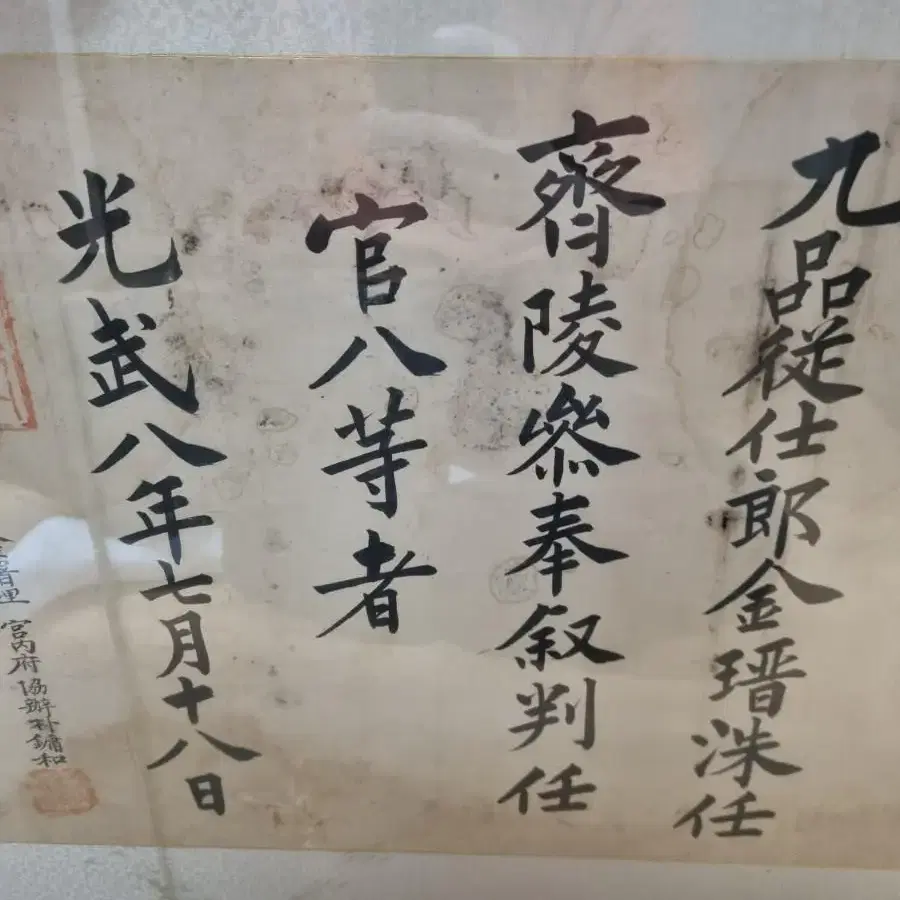 九品従仕郎金瑨洙任
齊陵叅奉叙判任
官八等者
光武八年七月十八日
署理 宮內府協辦朴鏞和